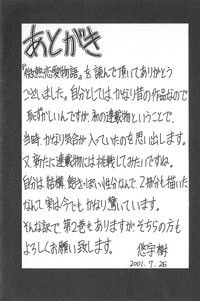 あとがき
『微熱恋愛物語』を読んで頂いてありがとう
ございました。自分としてはかなり昔の作品なので
恥ずかしいんですが、初の連載物ということで、
当時、かなり気合が入っていたのを思い出します。
又、新たに連載物には挑戦してみたいですね。
自分は結構、飽きっぽい性分なんで、2冊分も描いた
なんて実は今でもかなり驚いています。
そんな訳で、第2巻もありますが、そちらの方も
よろしくお願い致します。
悠宇樹
2001.7.26